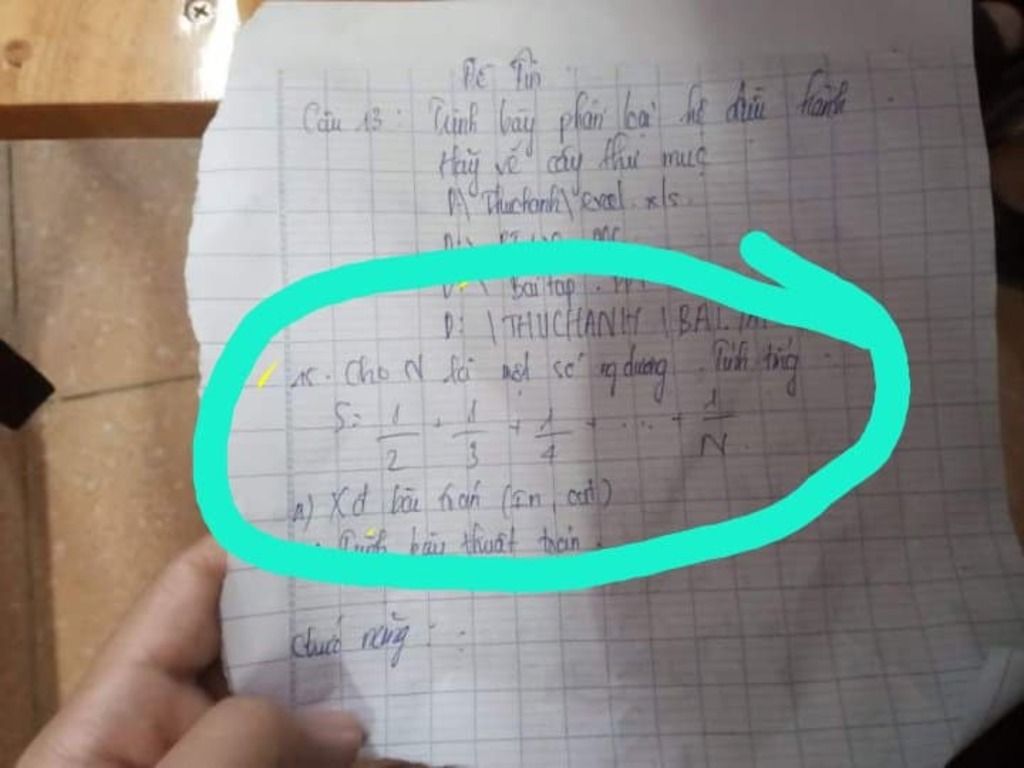 Đề Tin
Câu 13: Trình bày phân loại hệ điều hành
Hãy vẽ cây thư mục
D\ Thuchanh\ excel.xls.
\ Baitap.
D: \THUCHANH \BAI
15. Cho N là một số ng dương. Tính tổng:
S= 1/2 + 1/3 + 1/4 + ... + 1/N.
a) Xđ bài toán (In, out)
Trình bày thuật toán.
năng: